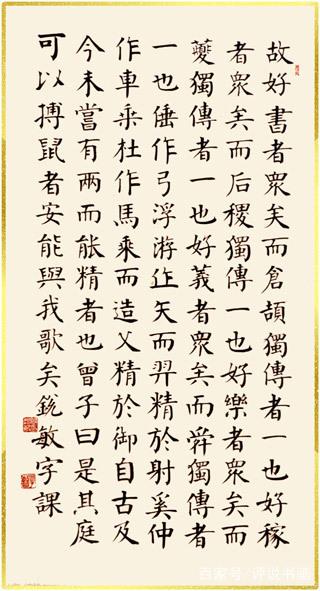 故好書者衆矣而倉頡獨傳者一也好稼
者衆矣而后稷獨傳一也好樂者衆矣而
夔獨傳者一也好義者衆矣而舜獨傳者
一也倕作弓浮游作矢而羿精於射奚仲
作車乘杜作馬乘而造父精於御自古及
今未嘗有兩而能精者也曾子曰是其庭
可以搏鼠者安能與我歌矣銳敏字課
百家号/评说书画